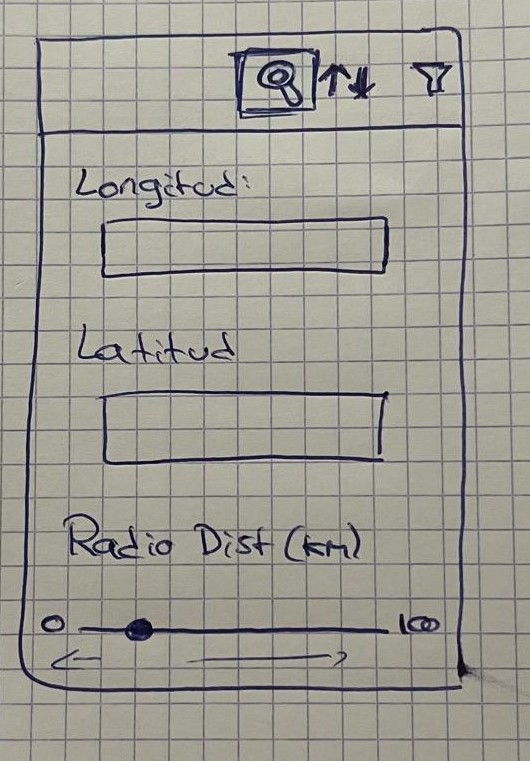 Longitud:
Latitud
Radio Dist (km)
0 100